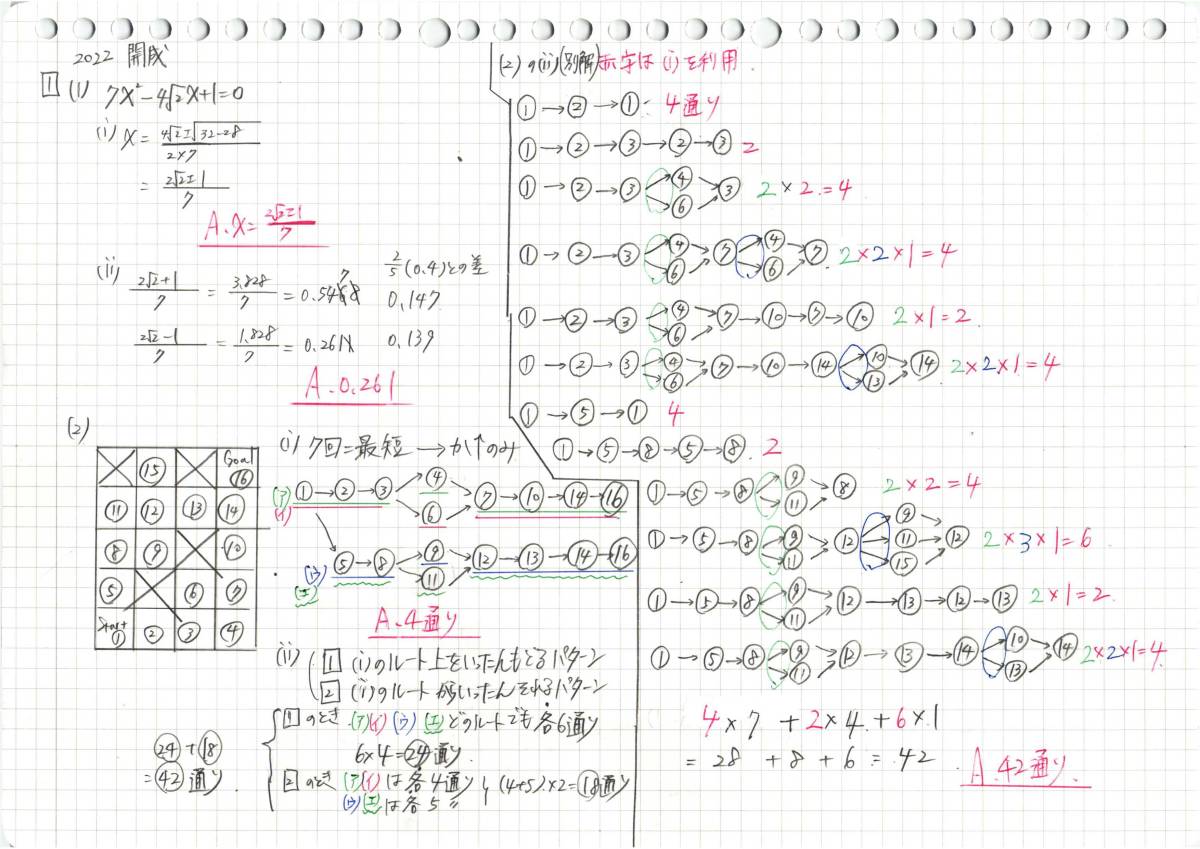 2022 開成
1 (1) 7x²-4√2x+1=0
(i) x= 4√2±√32-28 / 2×7
= 2√2±1 / 7
A. x= 2√2±1 / 7
(ii) 2√2+1 / 7 = 3.828 / 7 = 0.547
2/5(0.4)との差
0.147
2√2-1 / 7 = 1.828 / 7 = 0.261
0.139
A. 0.261
(2)
⑮ Goal ⑯
⑪ ⑫ ⑬ ⑭
⑧ ⑨ ⑩
⑤ ⑥ ⑦
Start ① ② ③ ④
(i) 7回=最短 →か↑のみ
(ア)(イ) ①→②→③ ④ ⑥ ⑦→⑩→⑭→⑯
(ウ)(エ) ⑤→⑧ ⑨ ⑪ ⑫→⑬→⑭→⑯
A. 4通り
(ii) 1 (i)のルート上をいったんもどるパターン
2 (i)のルートからいったんそれるパターン
1のとき (ア)(イ)(ウ)(エ)どのルートでも各6通り
6×4=24通り.
2のとき (ア)(イ)は各4通り
(ウ)(エ)は各5〃
(4+5)×2=18通り
24+18
=42通り.
(2)の(ii)(別解)赤字は(i)を利用
①→②→①: 4通り
①→②→③→②→③ 2
①→②→③ ④ ⑥ ③ 2×2=4
①→②→③ ④ ⑥ ⑦ ④ ⑥ ⑦ 2×2×1=4
①→②→③ ④ ⑥ ⑦→⑩→⑦→⑩ 2×1=2
①→②→③ ④ ⑥ ⑦→⑩→⑭ ⑩ ⑬ ⑭ 2×2×1=4
①→⑤→① 4
①→⑤→⑧→⑤→⑧. 2
①→⑤→⑧ ⑨ ⑪ ⑧ 2×2=4
①→⑤→⑧ ⑨ ⑪ ⑫ ⑨ ⑪ ⑮ ⑫ 2×3×1=6
①→⑤→⑧ ⑨ ⑪ ⑫→⑬→⑫→⑬ 2×1=2.
①→⑤→⑧ ⑨ ⑪ ⑫→⑬→⑭ ⑩ ⑬ ⑭ 2×2×1=4.
4×7+2×4+6×1
=28+8+6=42.
A. 42通り.